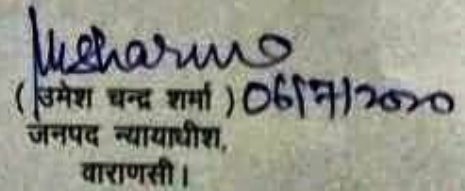 Usharma
( उमेश चन्द्र शर्मा ) 06/7/2020
जनपद न्यायाधीश,
वाराणसी।